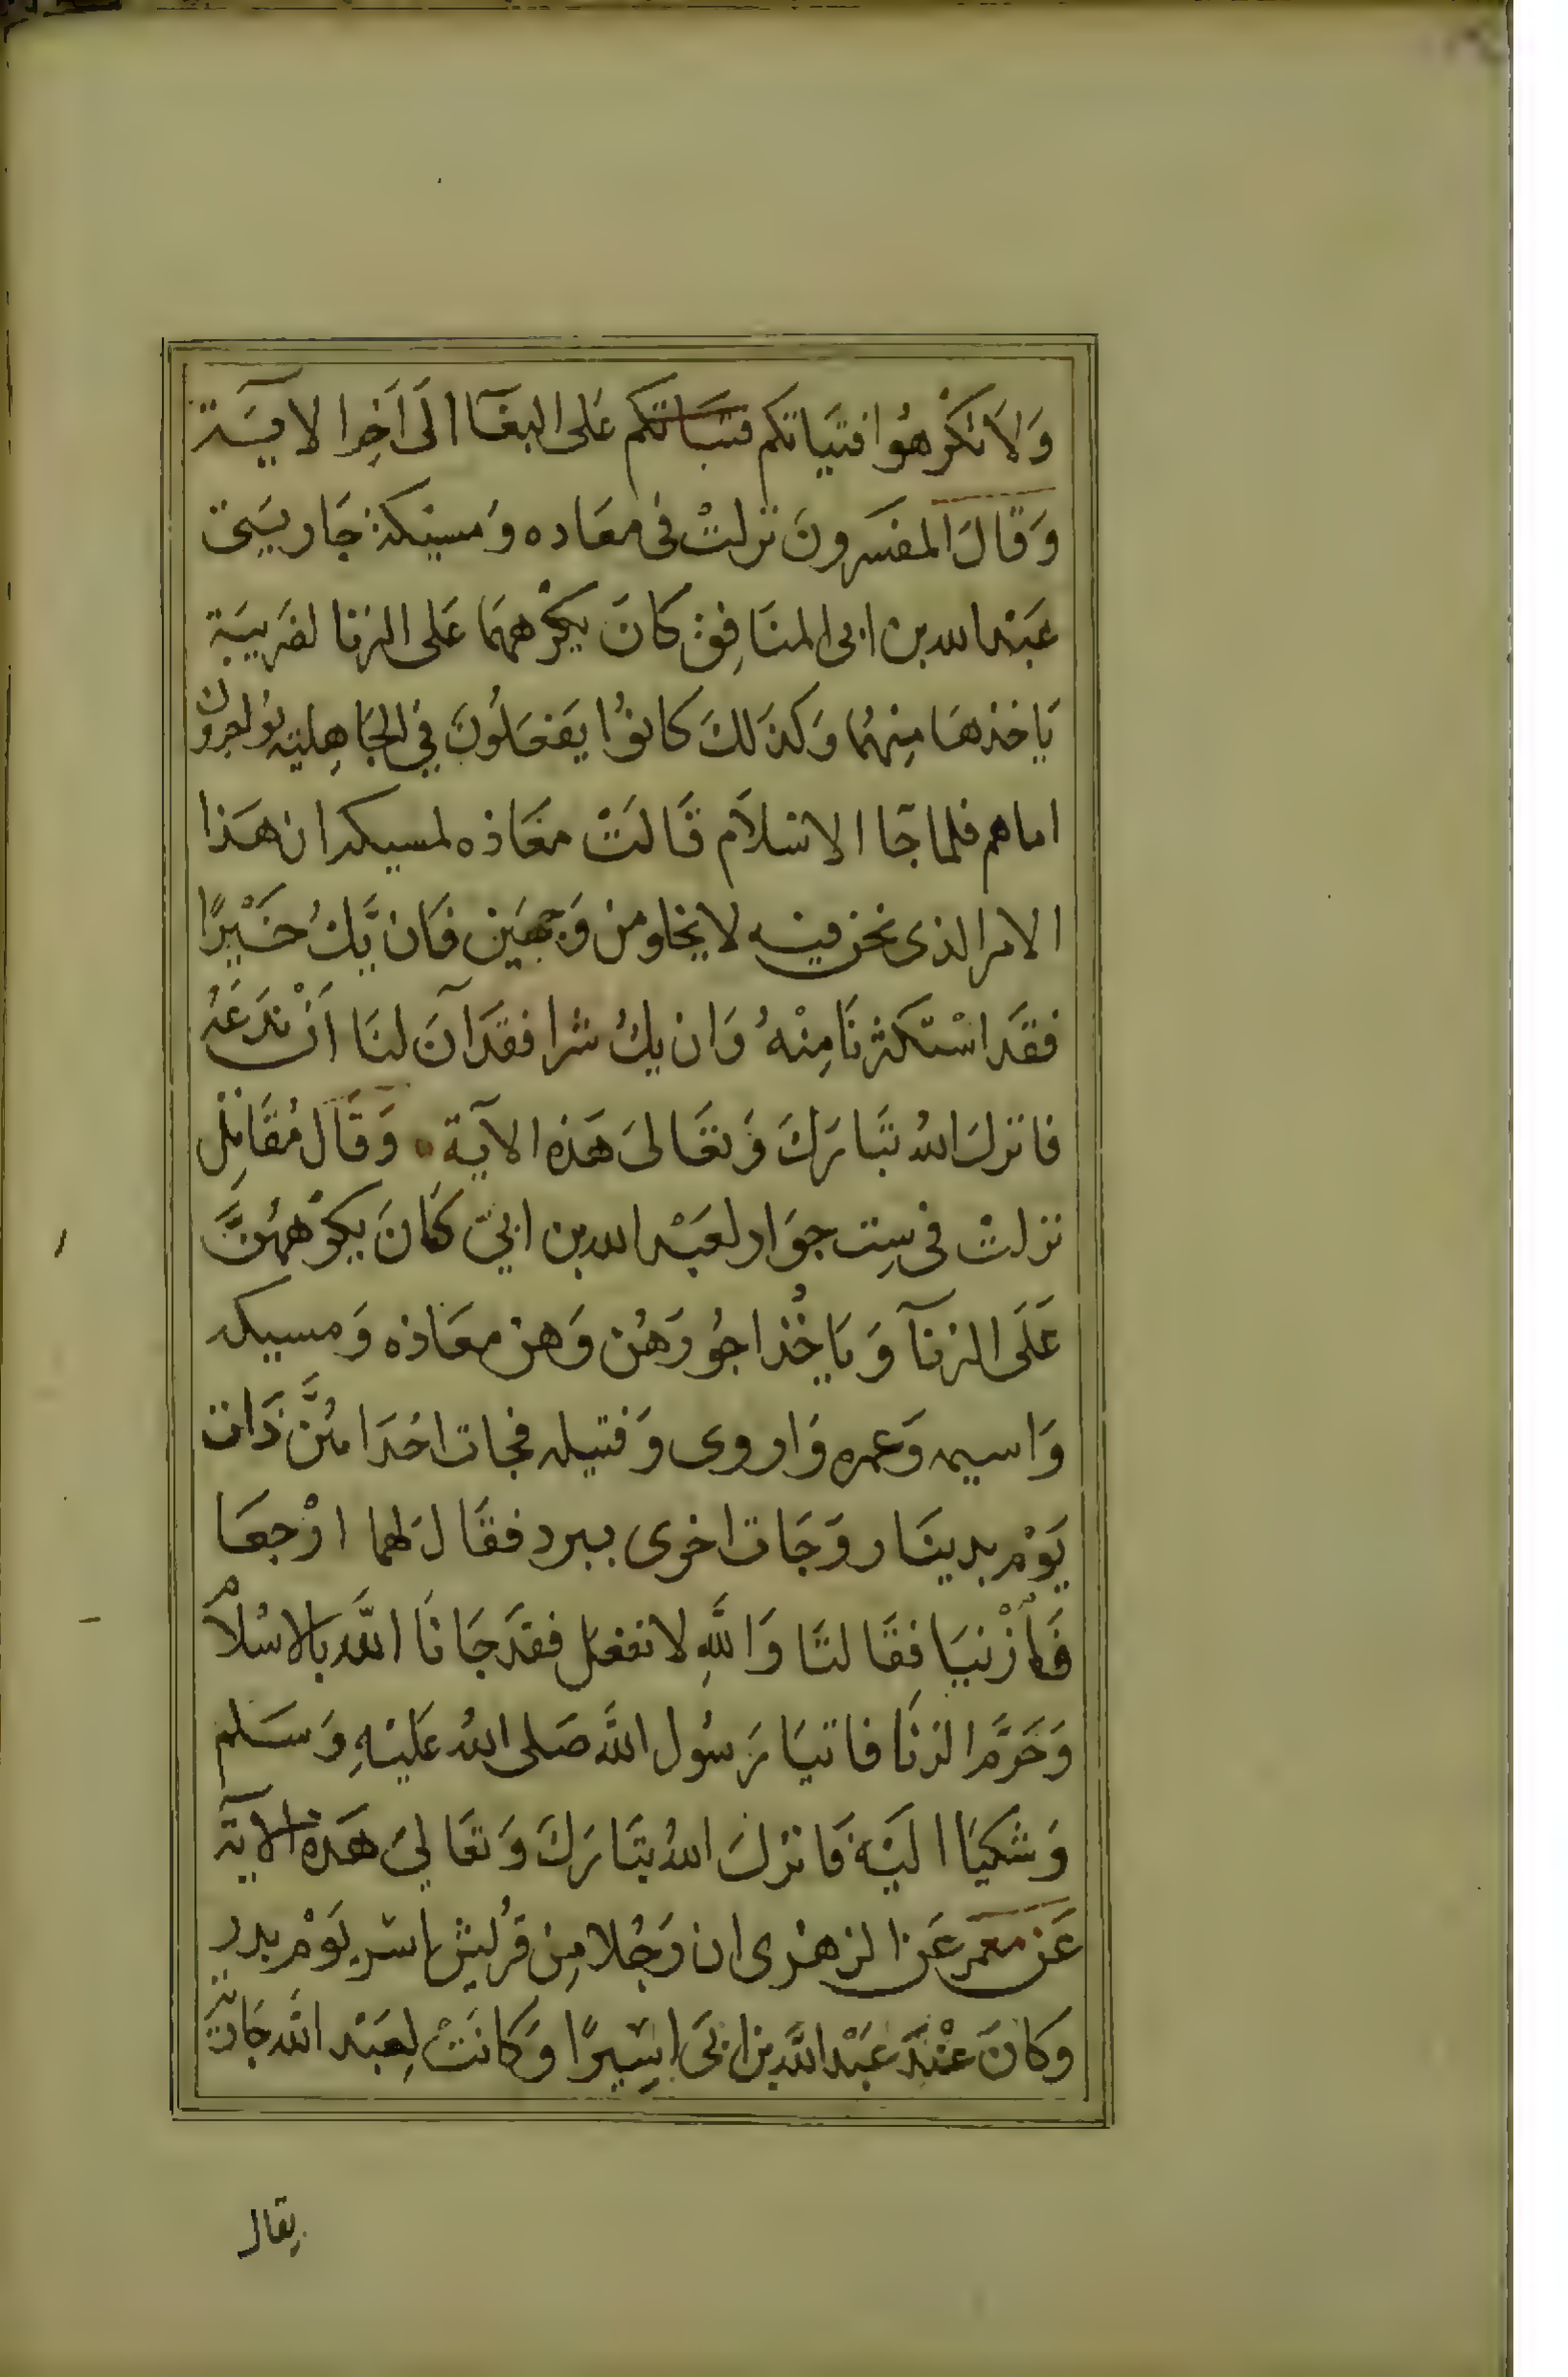 وَلَا تُكْرِهُوا فتَيَاتكم فتَبَاتكم عَلى البغَآا الَى اَخِرا لا يَة
وَقَالَ المفسَرونَ نزلتْ فى معَاده وَمسيْكة جَاريَتى
عَبْد الله بن ابى المنَافِق كَانَ يكْرههمَا عَلى الزنا لضَرِيبَة
يَاخذهَا مِنهُمَا وَكذَلكَ كانوُا يَفعَلُونَ فِي الجَاهِليَه يُواجرون
اماهم فلما جَا الاسْلَام قَالَتْ معَاذه لمسيكه ان هَذا
الامر الذى نحن فيْه لا يخلو من وَجهَين فَان يَّكُ خَيْرًا
فقَد اسْتَكثرنَا مِنْهُ وَان يكُ شرا فقَد آنَ لنَا اَنْ نَدَعَهُ
فانزلَ اللهُ تبَارَكَ وَتعَالىَ هَذه الآيَة وَقَالَ مُقَاتِل
نزلتْ فى سِت جوَار لعَبْد الله بن ابيّ كَانَ يكرْههُنَّ
عَلَى الزنآ وَيَاخُذ اجُورَهُن وَهن معَاذه وَمسيكه
وَاسيمه وَعمره وَاروى وَقتيله فجات احْدَا هُنَّ ذَات
يَوْم بدينَار وَجَات اخرى ببرد فقَالَ لهما ارْجعَا
فَاْزْنيَا فقَالتَا وَاللّٰهِ لا نفعَل فقَد جَانَا اللّٰه بالاسْلام
وَحَرَّم الزنَا فاتيَا رَسُول اللّٰه صَلى اللهُ عَليْهِ وَسَلم
وَشكيَا اليْه فَانزلَ اللهُ تبَارَكَ وَتعَاليَ هَذه الآية
عَن معمر عَن الزهْرى ان رَجُلا مِن قرُيش اسَر يَوْم بدر
وَكانَ عنْدَ عَبْد اللّٰه بن ابىَ اسِيرًا وَكانَتْ لِعَبْد اللّٰه جَارية
يقال